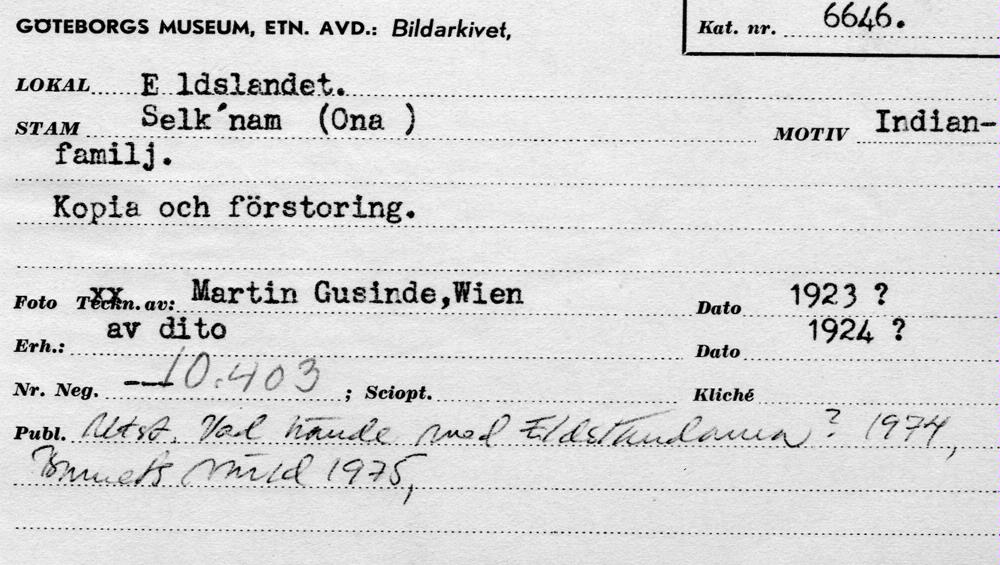 GÖTEBORGS MUSEUM, ETN. AVD.: Bildarkivet, Kat. nr. 6646.
LOKAL E ldslandet.
STAM Selk´nam (Ona ) MOTIV Indian-
familj.
Kopia och förstoring.
Foto Teckn. av: Martin Gusinde,Wien Dato 1923 ?
Erh.: av dito Dato 1924 ?
Nr. Neg. 10.403 ; Sciopt. Kliché
Publ. Utst. Vad hände med Eldsländarna? 1974,
1975,